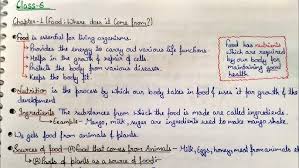 Class-6
Chapter-1 (Food: Where does it come from?)
Food is essential for living organisms.
Provides the energy to carry out various life functions.
Helps in the growth & repair of cells.
Protects the body from various diseases.
Keeps the body fit.
Food has nutrients
which are required
by our body for
maintaining good
health.
Nutrition is the process by which our body takes in food & uses it for growth & the
development
Ingredients The substances from which the food is made are called ingredients.
Example - Mango, milk, sugar are ingredients used to make mango shake.
We get food from animals & plants.
Sources of food - (A) Food that comes from Animals - Milk, Eggs, honey, meat from animals
(B) Parts of plants as a source of food:-